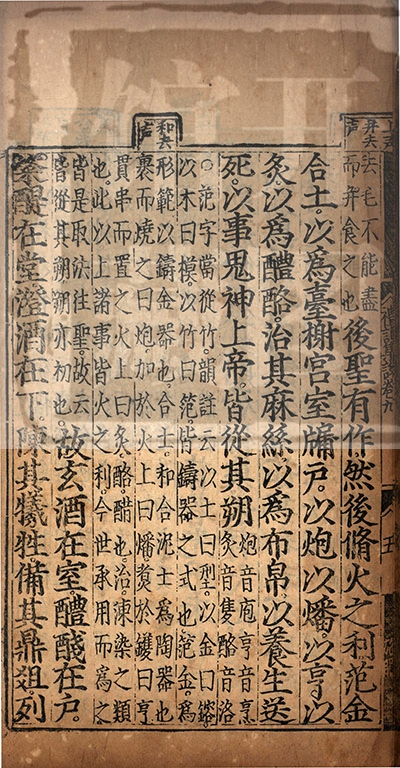 并去聲
去毛不能盡
而并食之也
後聖有作然後脩火之利范金
合土。以爲臺榭宮室牖戶。以炮以燔。以亨以
炙。以爲醴酪。治其麻絲。以爲布帛。以養生送
死。以事鬼神上帝。皆從其朔
炮音庖亨音烹
炙音隻酪音洛
和去聲
○范字當從竹。韻註云。以土曰型。以金曰鎔。
以木曰模。以竹曰笵。皆鑄器之式也。范金。爲
形範以鑄金器也。合土。和合泥土爲陶器也。
裹而燒之曰炮。加於火上曰燔。煑於鑊曰亨。
貫串而置之火上曰炙。酪。醋也。治。湅染之類
也。此以上諸事皆火之利。今世承用而爲之。
皆是取法往聖。故云
皆從其朔。朔亦初也。
故玄酒在室。醴醆在戶。
粢醍在堂。澄酒在下。陳其犧牲。備其鼎俎。列
五